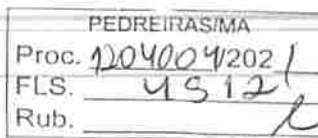 PEDREIRAS/MA
Proc. 1204004/2021
FLS. 4512
Rub.